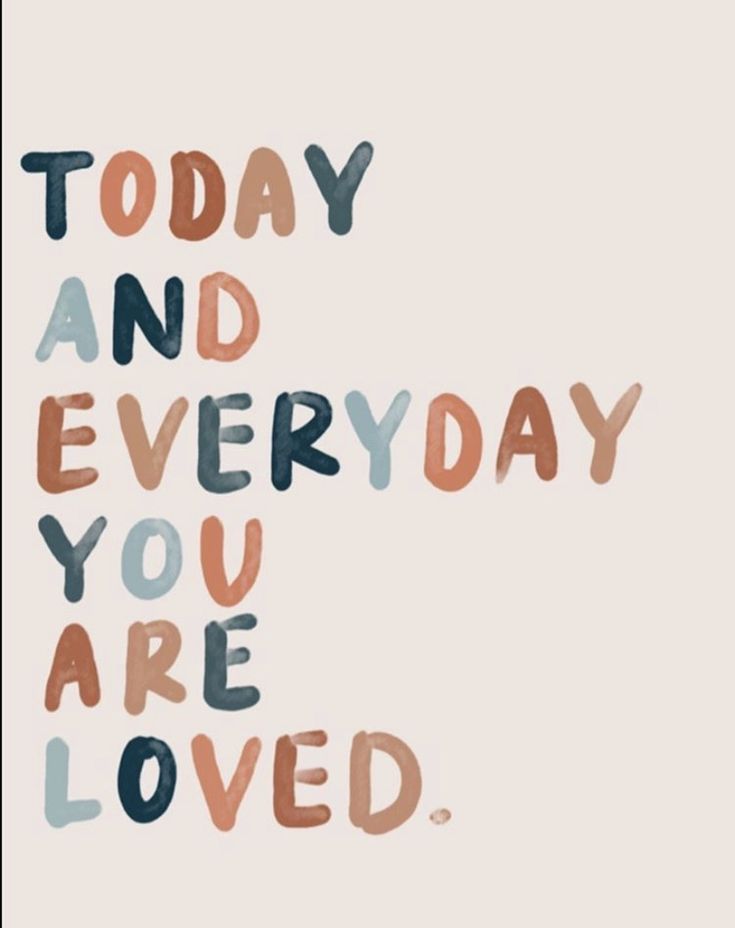 TODAY
AND
EVERYDAY
YOU
ARE
LOVED.